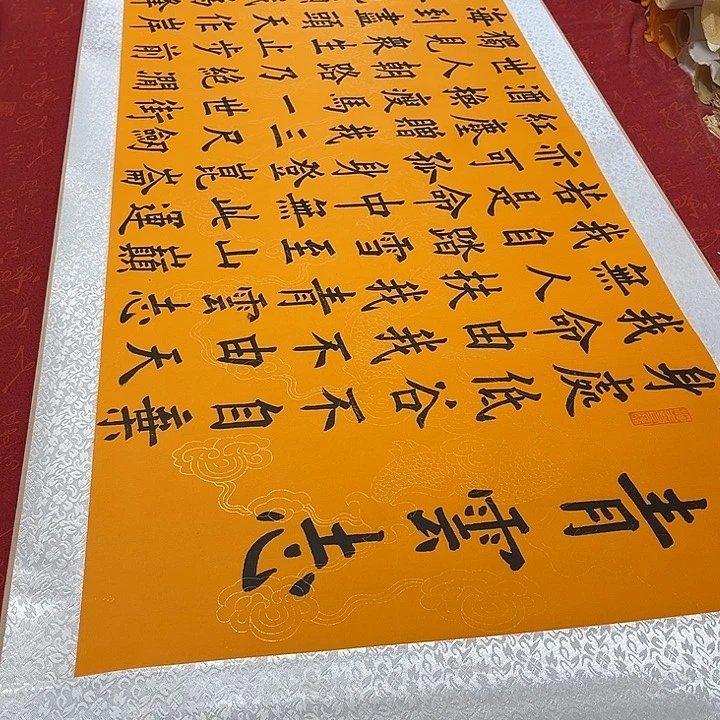 青雲志
身處低谷不自棄
我命由我不由天
無人扶我青雲志
我自踏雪至山巔
若是命中無此運
亦可孤身登崑崙
紅塵贈我三尺劍
酒換瘦馬一世街
世人朝路乃絕澗
獨見衆生止步前
海到盡頭天作岸